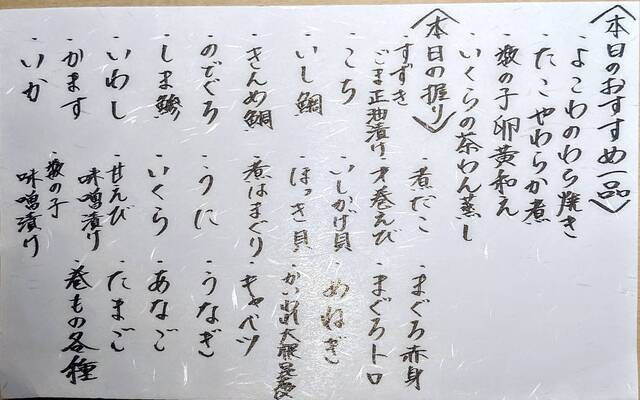 〈本日のおすすめ一品〉
・よこわのわら焼き
・たこやわらか煮
・数の子卵黄和え
・いくらの茶わん蒸し
〈本日の握り〉
・すずき
ごま正油漬け
・こち
・いし鯛
・きんめ鯛
・のどぐろ
・しま鯵
・いわし
・かます
・いか
・煮だこ
・才巻えび
・いしがげ貝
・ほっき貝
・煮はまぐり
・うに
・いくら
・甘えび
味噌漬け
・数の子
味噌漬け
・まぐろ赤身
・まぐろトロ
・めねぎ
・かいわれ大根昆布〆
・キャベツ
・うなぎ
・あなご
・たまご
・巻もの各種